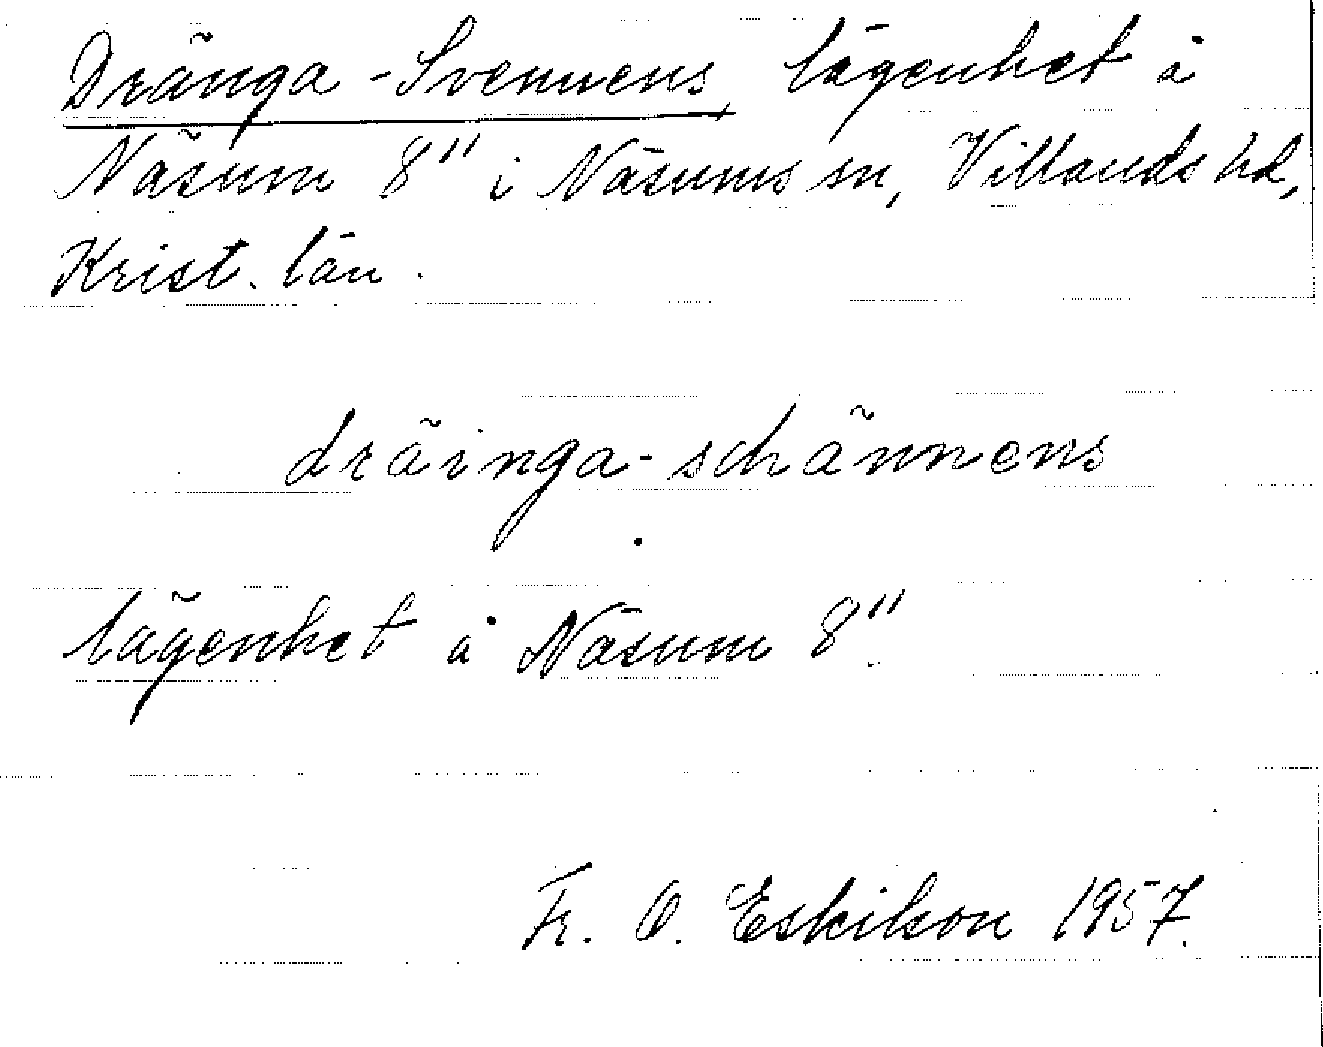 Dränga-Svennens, lägenhet å
Näsum 8" i Näsums sn, Villands hd,
Krist. län.
dräinga-schännens
lägenhet å Näsum 8".
Fr. O. Eskilson 1957.